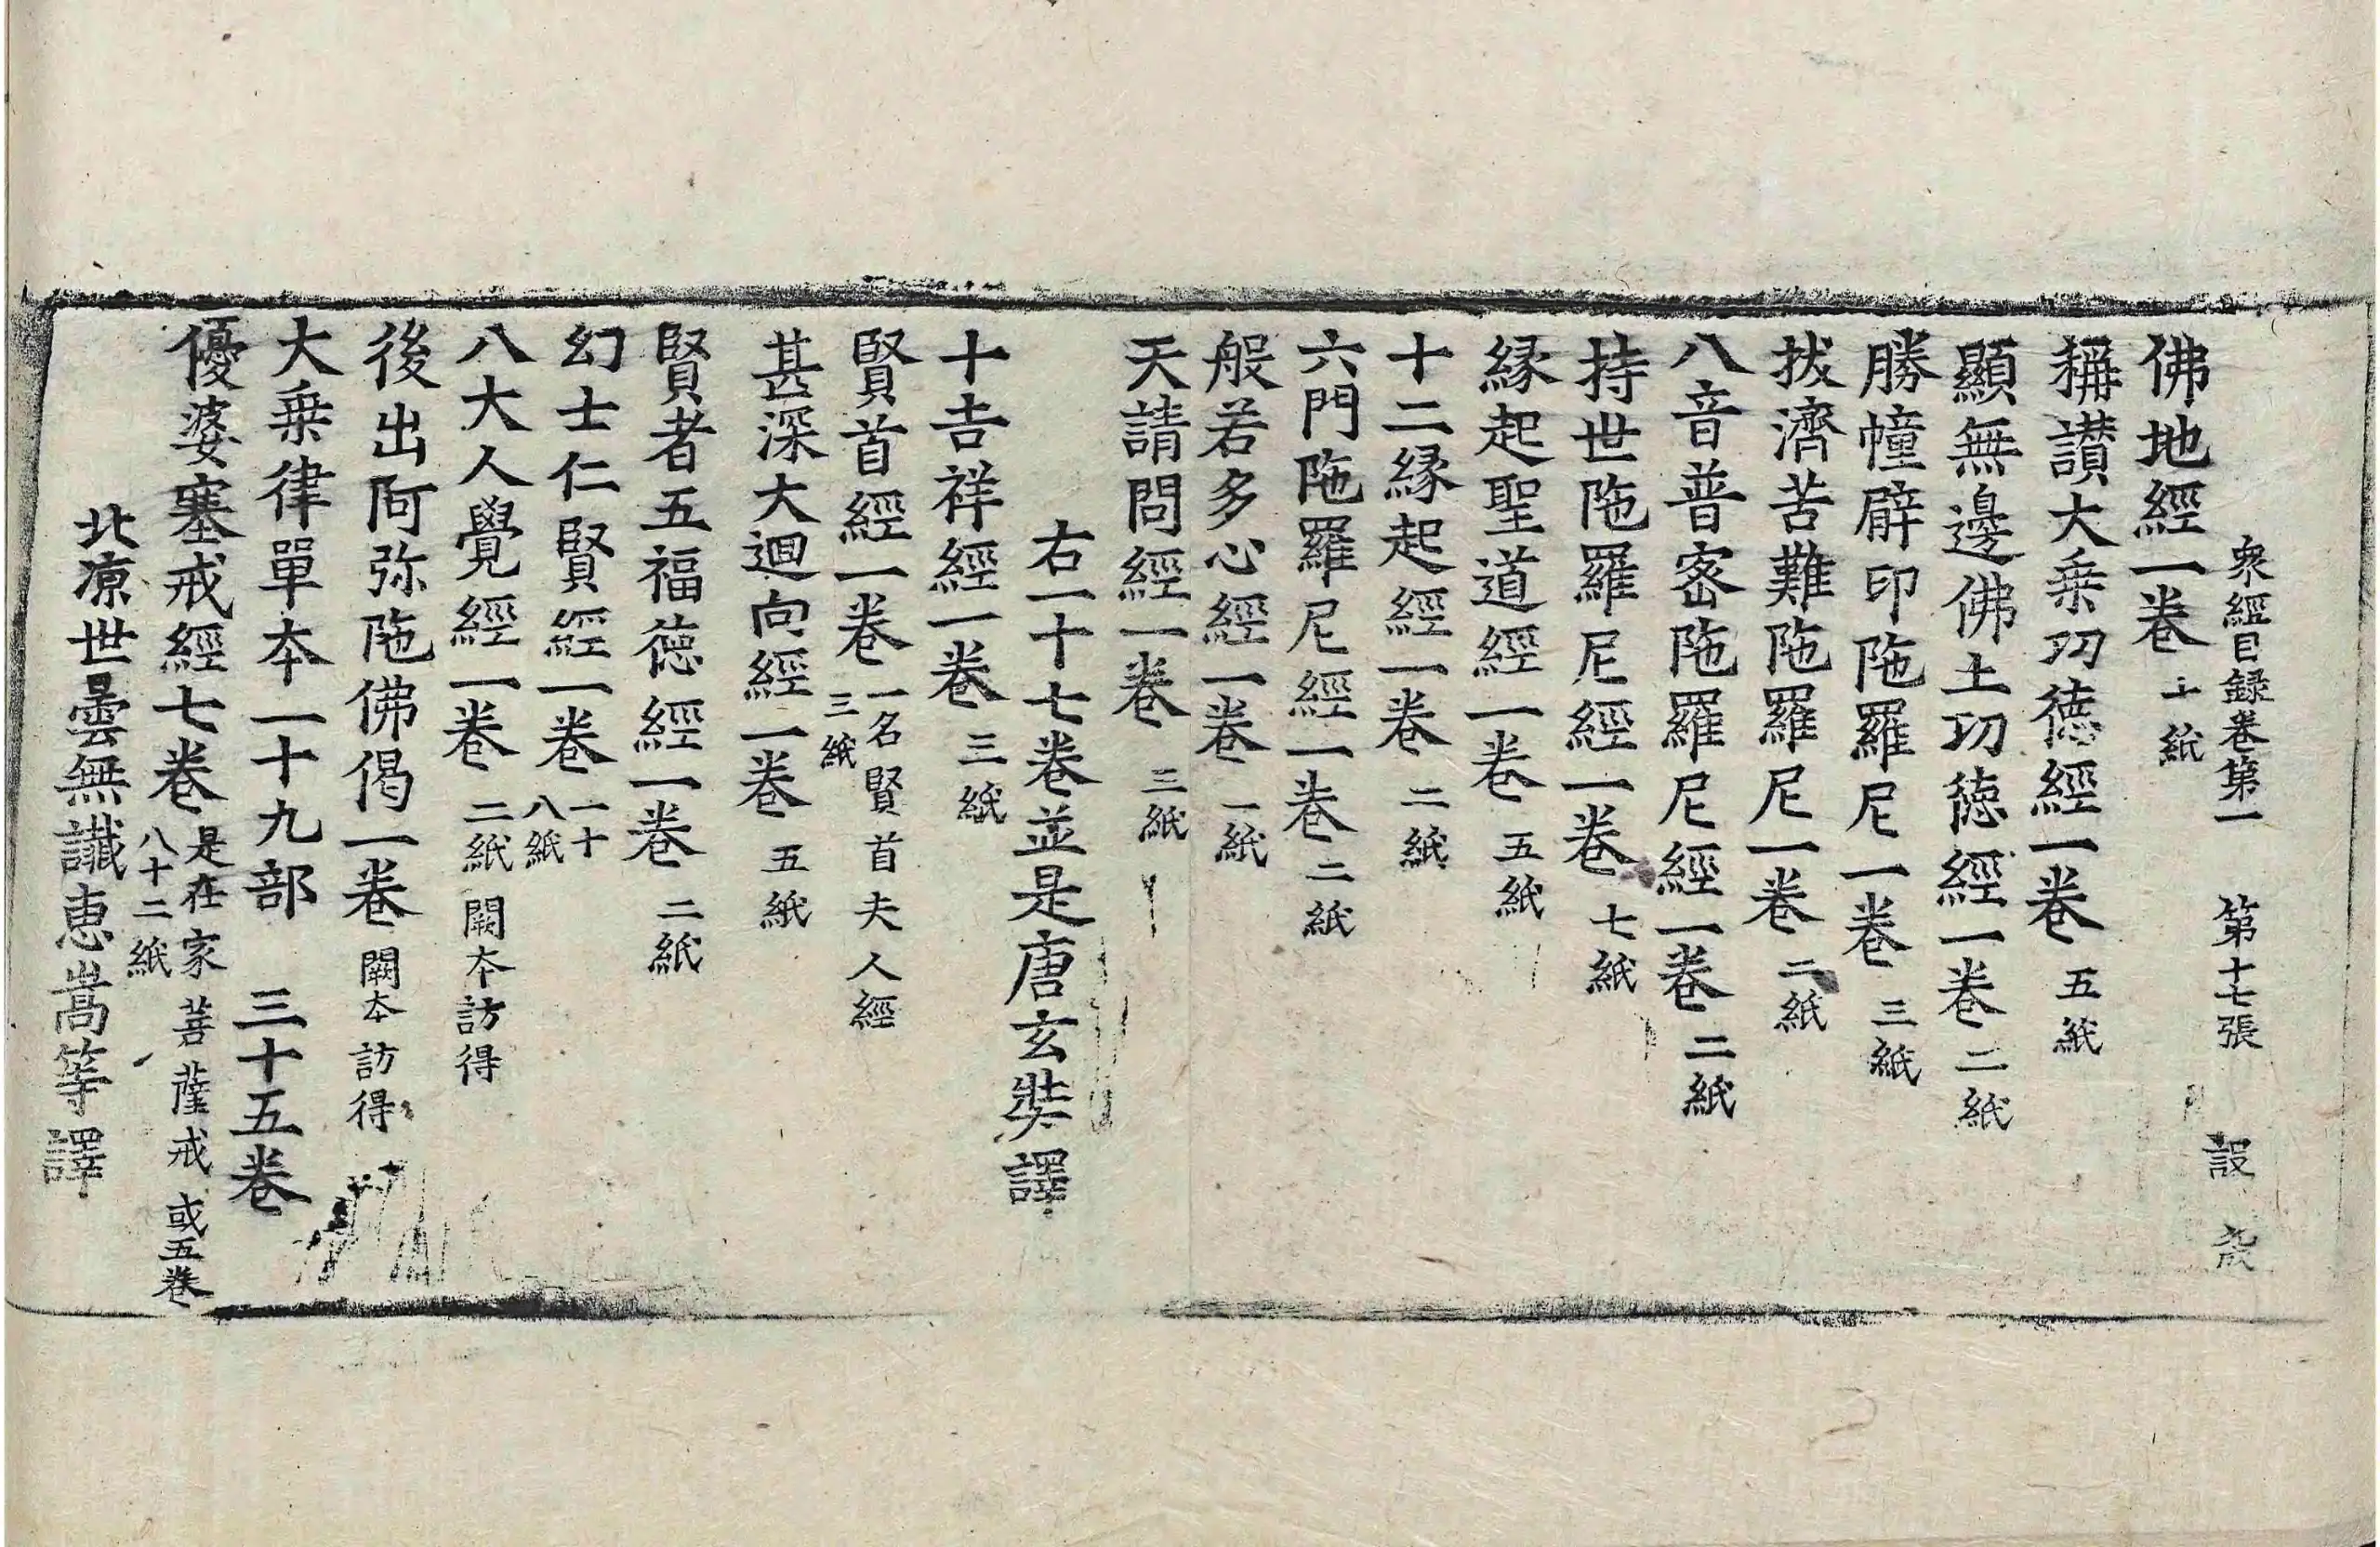 衆經目録卷第一　第十七張　設
佛地經一卷 十紙
稱讃大乗功徳經一卷 五紙
顯無邊佛土功徳經一卷 二紙
勝幢臂印陁羅尼一卷 三紙
拔濟苦難陁羅尼一卷 二紙
八音普宻陁羅尼經一卷 二紙
持世陁羅尼經一卷 七紙
縁起聖道經一卷 五紙
十二縁起經一卷 二紙
六門陁羅尼經一卷 二紙
般若多心經一卷 一紙
天請問經一卷 三紙
右一十七卷並是唐玄奘譯
十吉祥經一卷 三紙
賢首經一卷 一名賢首夫人經 三紙
甚深大迴向經一卷 五紙
賢者五福徳經一卷 二紙
幻士仁賢經一卷 一十八紙
八大人覺經一卷 二紙 闕本訪得
後出阿弥陁佛偈一卷 闕本訪得
大乗律單本一十九部　三十五卷
優婆塞戒經七卷 是在家菩薩戒 或五卷 八十二紙
北涼世曇無讖惠嵩等譯